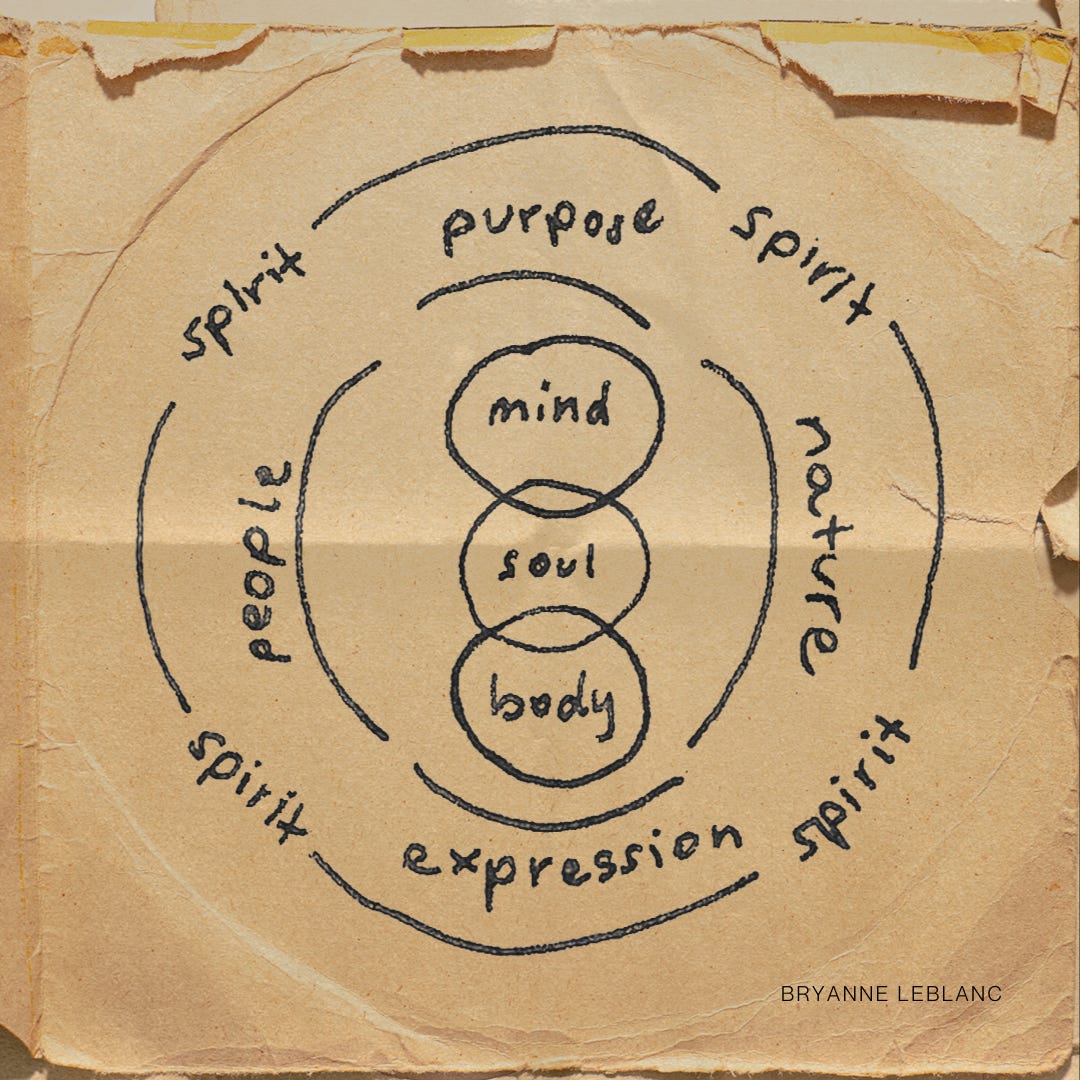 purpose
spirit
spirit
mind
people
nature
soul
body
spirit
spirit
expression
BRYANNE LEBLANC